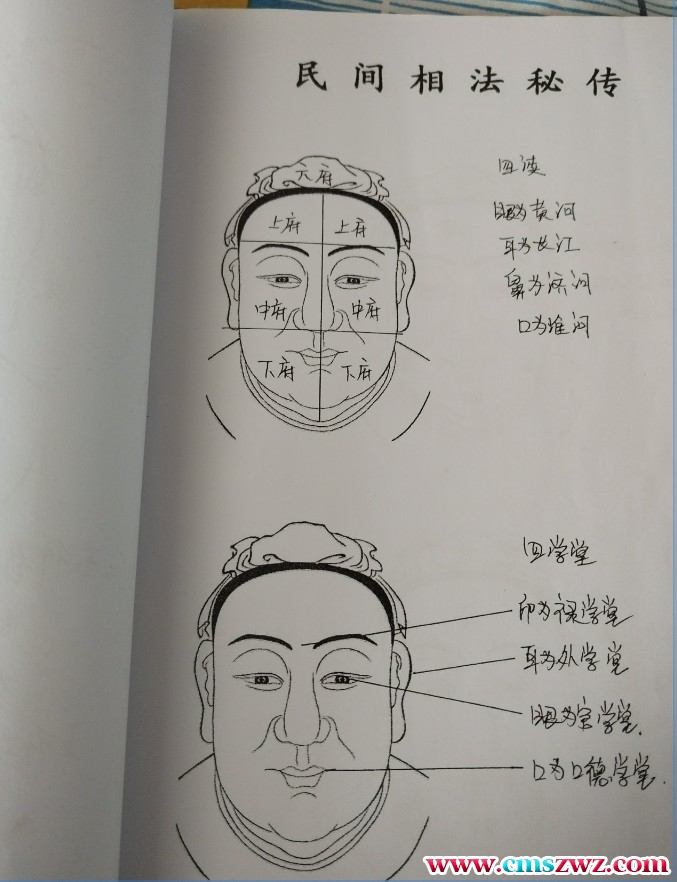 民间相法秘传
六府
上府 上府
中府 中府
下府 下府
四渎
眼为黄河
耳为长江
鼻为济河
口为淮河
四学堂
印为禄学堂
耳为外学堂
眼为官学堂.
口为口德学堂.
www.cmszwz.com